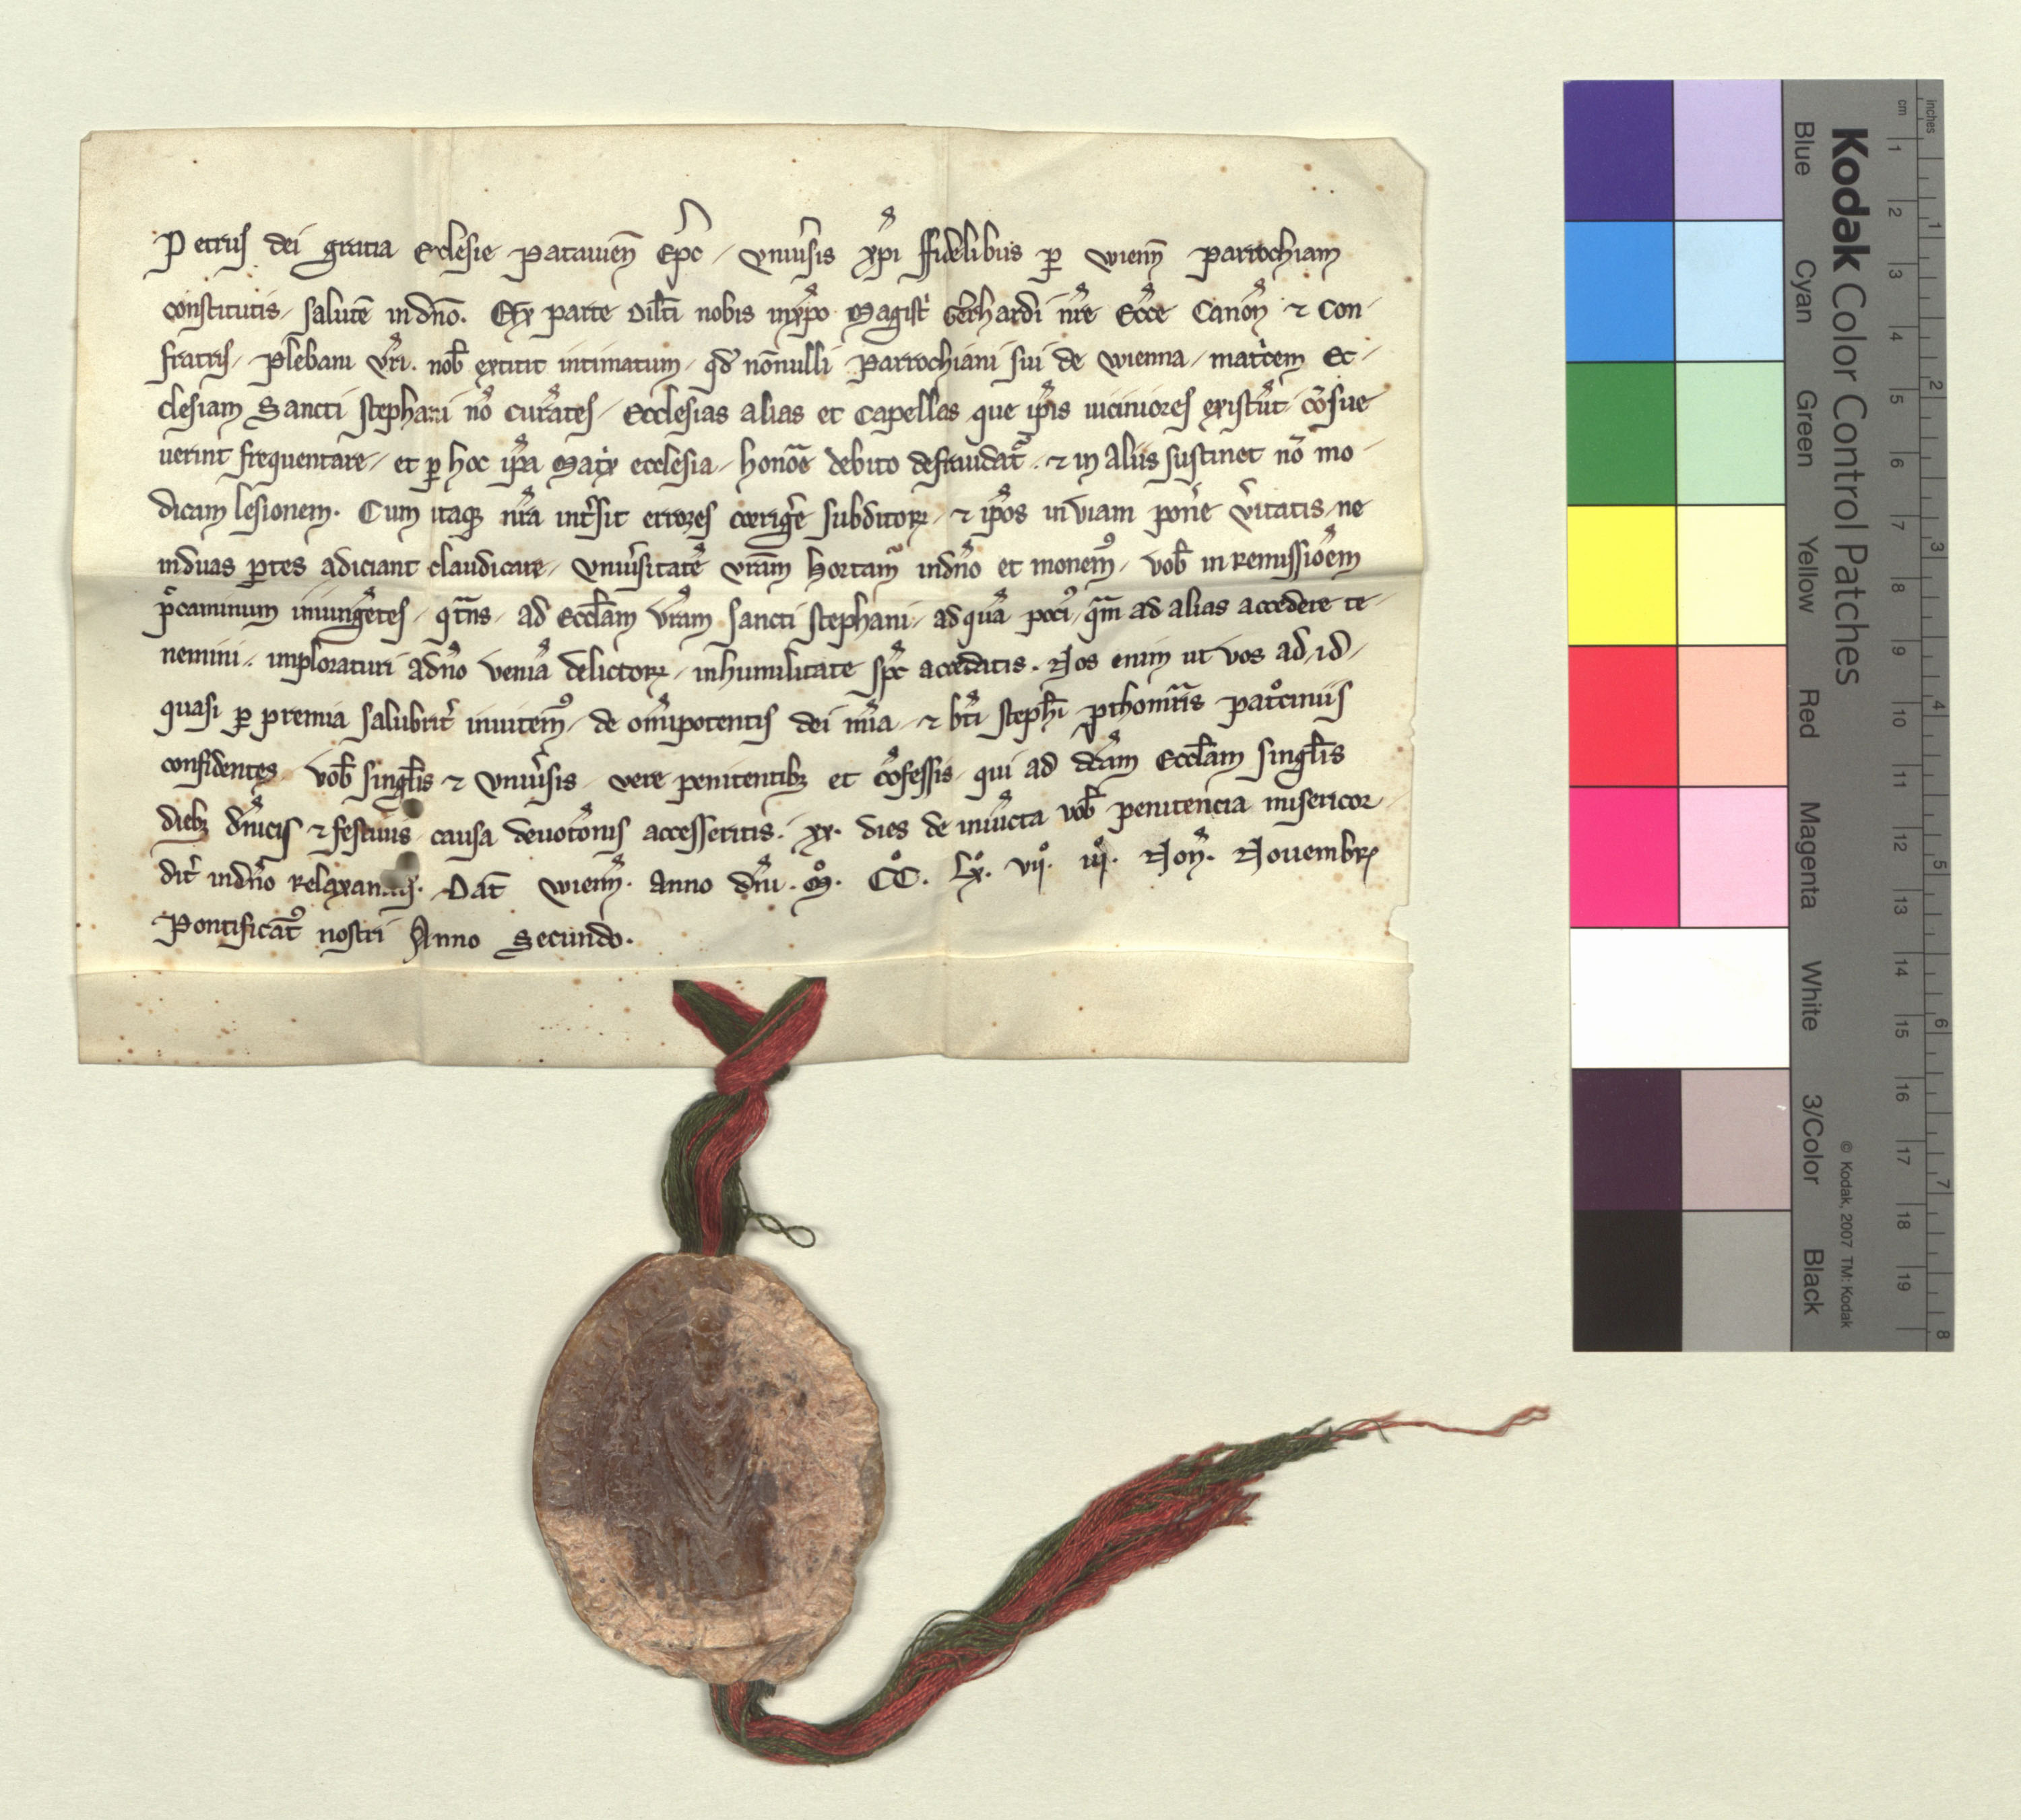 Petrus dei gratia Ecclesie Patauień Epc / Vniu̓sis xp̄i ffidelibus p̲ wienn̄ parrochiam
constitutis / salutē in dn̄o. Ex parte dilc̄i nobis inxp̄o Magist̓ Gerhardi nr̄e Ecc̄e Canon̄ ⁊ Con-
fratris / plebani vr̄i. nob̄ extitit intimatum / qd̄ nōnulli parrochiani sui de wienna / mat̓cem Ec-
clesiam Sancti Stephani nō curātes / Ecclesias alias et Capellas que ip̄is uiciniores existūt / cōsue
uerint frequentare / et p̲ hoc ip̄a Mat̓x ecclesia / honōe debito defraudat̄ . ⁊ in aliis sustinet nō mo-
dicam lesionem. Cum itaqꝫ nr̄a int̓sit errores corrig̓e subditoꝝ / ⁊ ip̄os in viam pon̓e v̓itatis / ne
induas p̲tes adiciant claudicare / vniu̓sitatē vrām hortam̄ indn̄o et monem̄ꝰ / vob̄ in remissiōem
p̄caminum iniungētes / qt̄ns / ad Eccl̄am vrām Sancti Stephani / ad quā poci̓ꝰ / qm̄ ad alias accedere te-
nemini / imploraturi adn̄o veniā delictoꝝ / inhumilitate sp̄c accedatis. Nos enim ut vos ad id /
quasi p̲ premia salubrit̓ inuitem̄ꝰ / de om̄ipotentis dei mīa / ⁊ bt̄i Steph̄i p̲thomr̄is pat̊ciniis
confidentes / vob̄ singl̄is ⁊ vniu̓sis / vere penitentibꝫ et cōfessis / qui ad dc̄am Eccl̄am singl̄is
diebꝫ dn̄icis ⁊ festiuis causa deuotōnis accesseritis / xx. dies de iniūcta vob̄ penitencia misericor-
dit̓ indn̄o relaxan. Dat̄ wienn̄. Anno dn̄i. M̊. CC̊. Lx̊. vii̊. iii̊. Non̄. Nouembrꝭ
Pontificat̄ꝰ nostri Anno Secundo.
Kodak Color Control Patches
© Kodak, 2007 TM: Kodak
Blue
Cyan
Green
Yellow
Red
Magenta
White
3/Color
Black
cm
1 2 3 4 5 6 7 8 9 10 11 12 13 14 15 16 17 18 19
inches
1 2 3 4 5 6 7 8